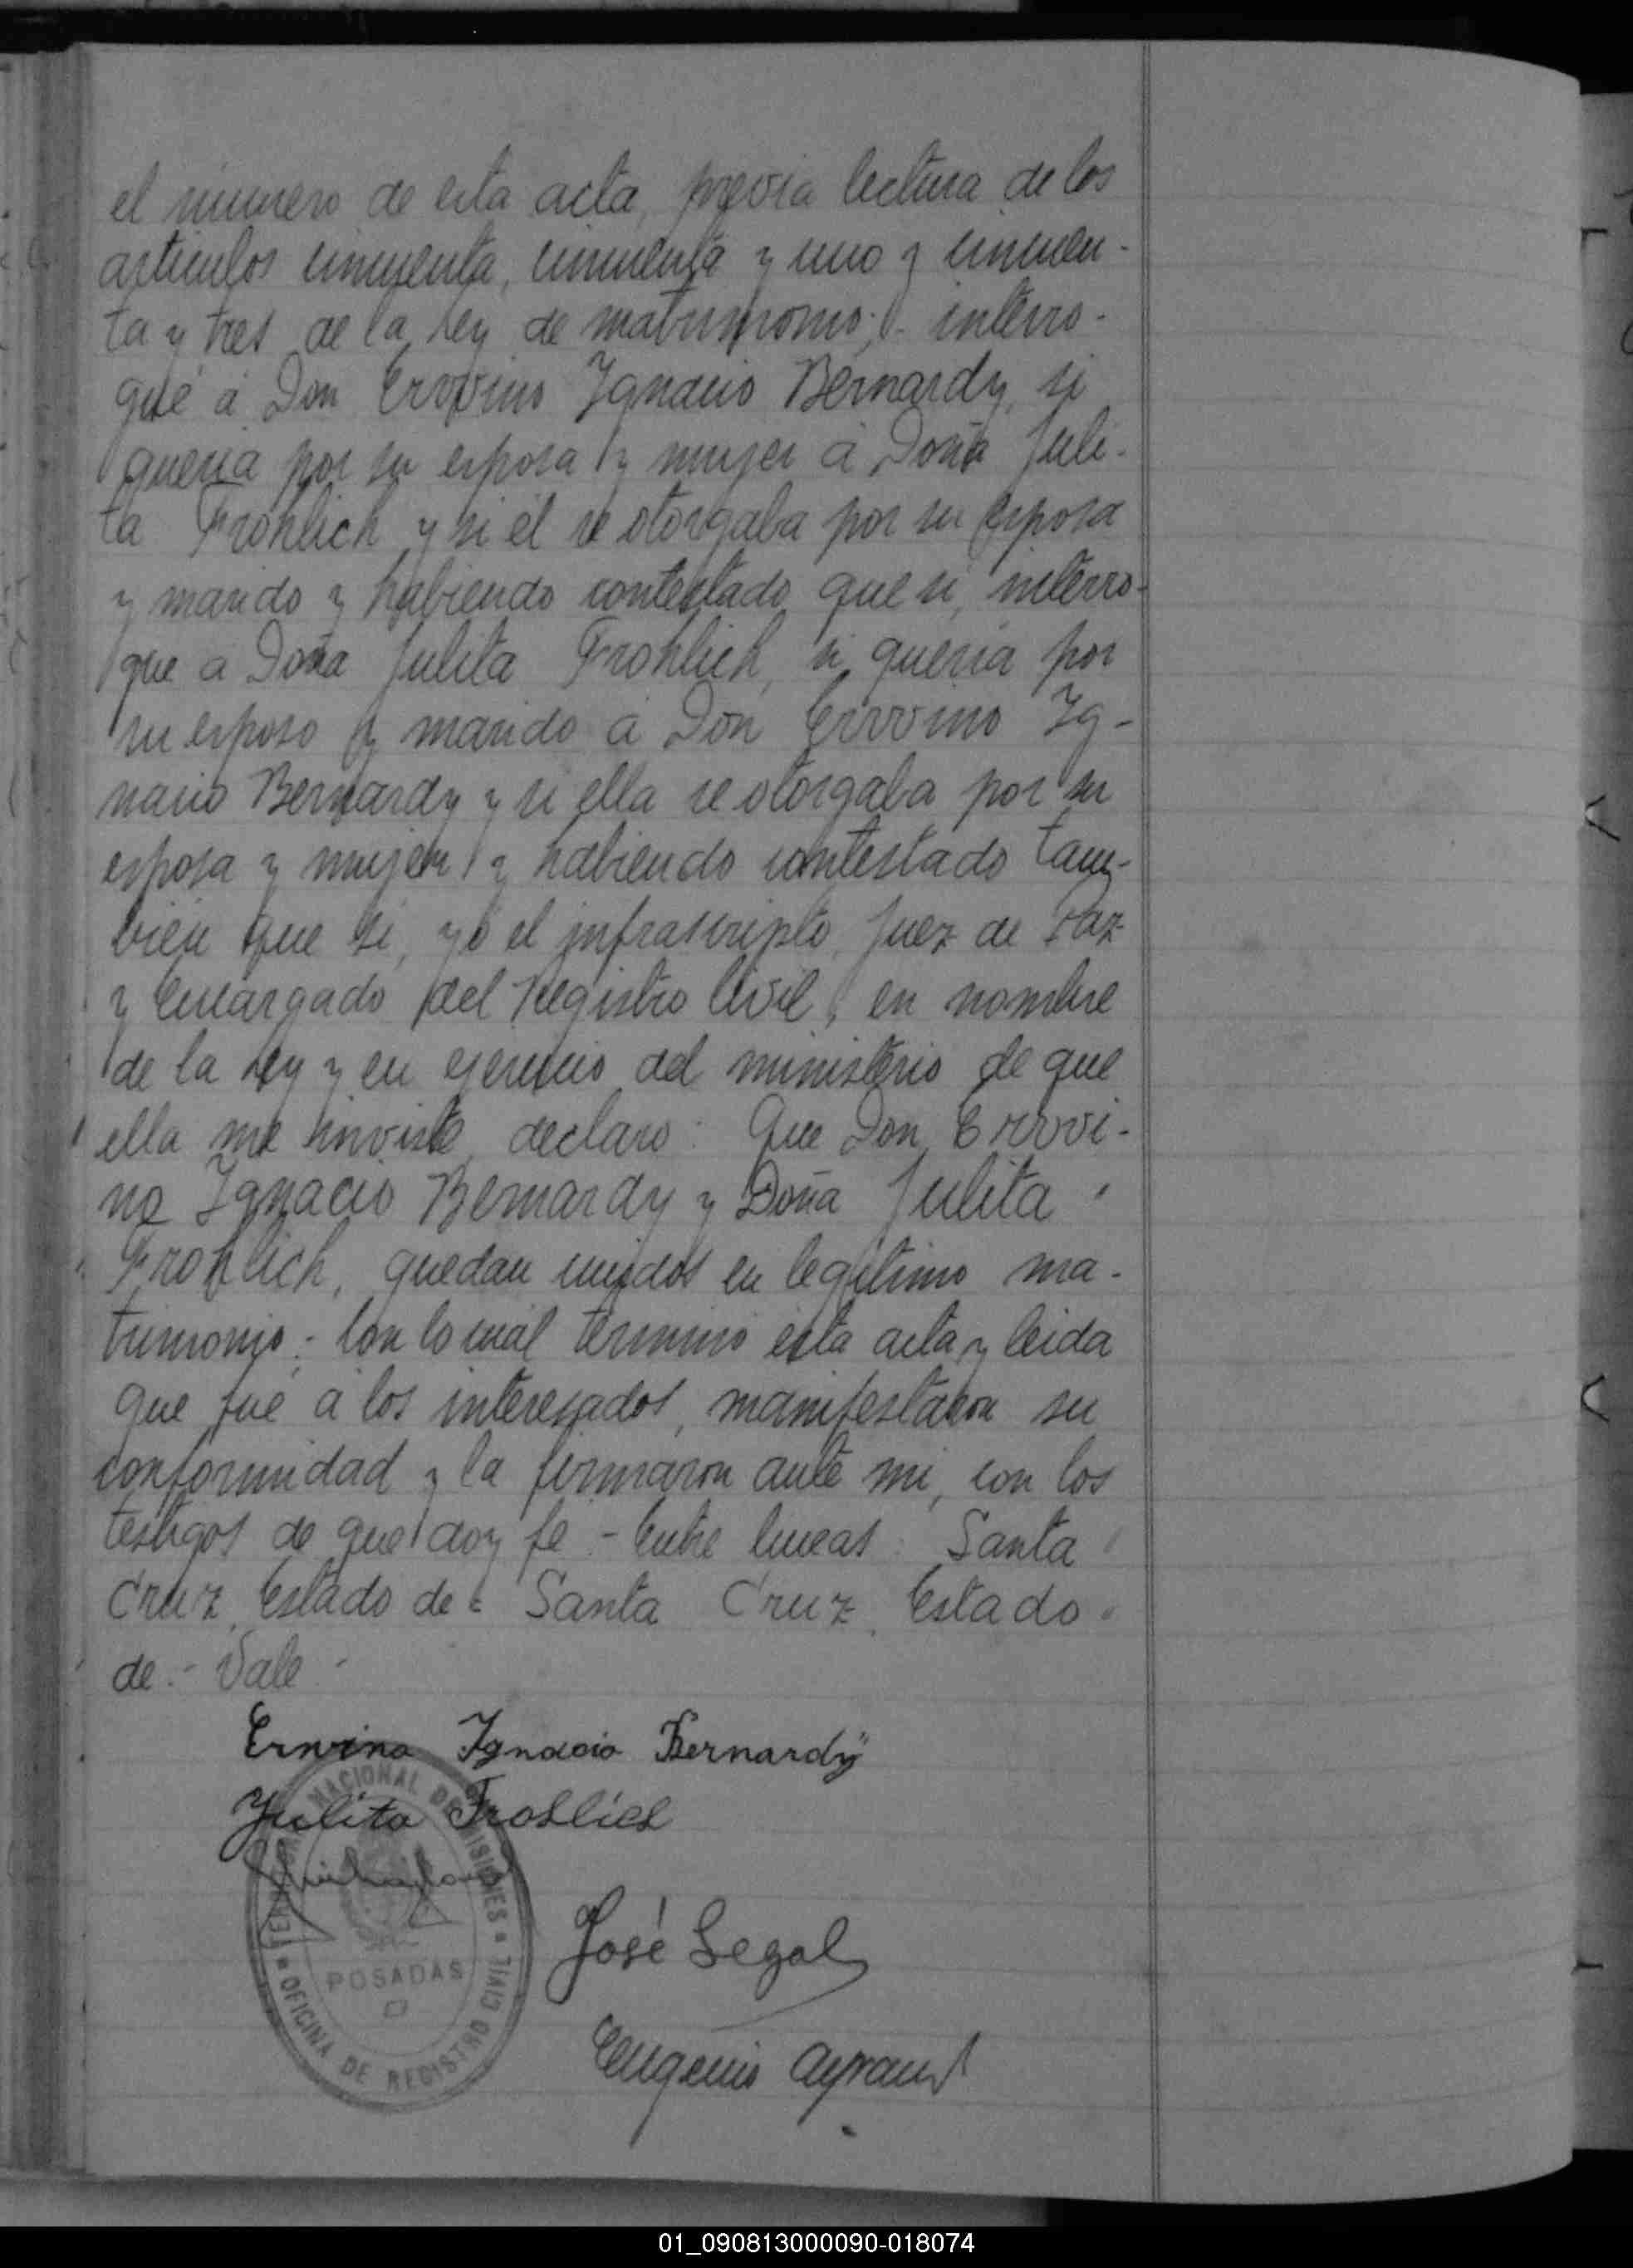 el número de esta acta, previa lectura de los
artículos cincuenta, cincuenta y uno y cincuen-
ta y tres de la Ley de matrimonio; - interro-
gué á Don Ervvino Ignacio Bernardy, si
quería por su esposa y mujer á Doña Juli-
ta Frohlich y si él se otorgaba por su esposa
y marido y habiendo contestado que si, interro-
gue a Doña Julita Frohlich, si quería por
su esposo y marido a Don Ervvino Ig-
nacio Bernardy y si ella se otorgaba por su
esposa y mujer y habiendo contestado tam-
bién que si, yó el infrascripto, Juez de Paz
y Encargado del Registro Civil, en nombre
de la Ley y en ejercicio del ministerio de que
ella me inviste declaro: Que Don Ervvi-
no Ignacio Bernardy y Doña Julita
Frohlich, quedan unidos en legítimo ma-
trimonio. - Con lo cuál terminó esta acta y leida
que fué á los interesados, manifestaron su
conformidad y la firmaron ante mi, con los
testigos de que doy fe. - Entre lineas: Santa
Cruz, Estado de = Santa Cruz, Estado
de. - Vale -
Ervino Ignacio Bernardÿ
Julita Frohlich
José Segal
Eugenio Ayraut
NACIONAL DE MISIONES
POSADAS
OFICINA DE REGISTRO CIVIL
01_090813000090-018074